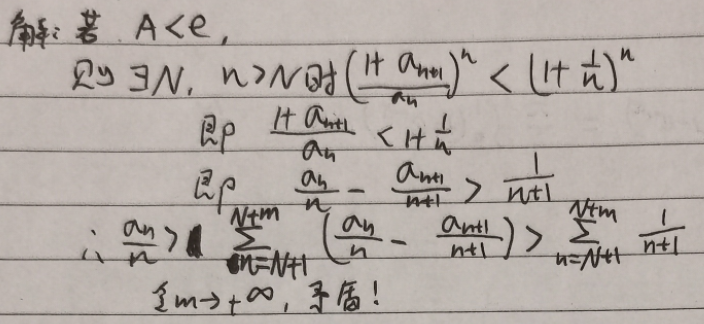 解: 若 A<e,
则 ∃N, n>N时 (\frac{1+a_{n+1}}{a_n})^n < (1+\frac{1}{n})^n
即 \frac{1+a_{n+1}}{a_n} < 1+\frac{1}{n}
即 \frac{a_n}{n} - \frac{a_{n+1}}{n+1} > \frac{1}{n+1}
∴ \frac{a_n}{n} > \sum_{n=N+1}^{N+m} (\frac{a_n}{n} - \frac{a_{n+1}}{n+1}) > \sum_{n=N+1}^{N+m} \frac{1}{n+1}
令 m→+∞, 矛盾!